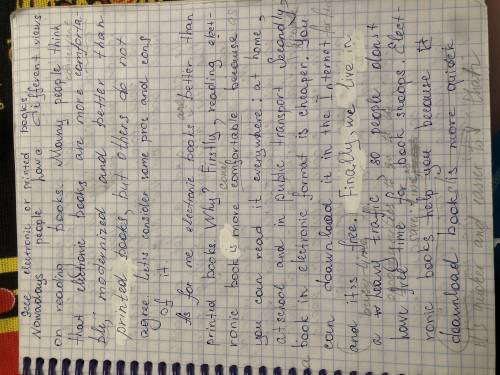 electronic or printed books
Nowadays people have different views
on reading books. Many people think
that electronic books are more comforta-
ble, modernized and better than
printed books, but others do not
agree. Let's consider some pros and cons
of it
As for me electronic books are better than
printed books. Why? Firstly, reading elect-
ronic book is more comfortable because
you can read it everywhere: at home,
at school and in public transport. Secondly,
a book in electronic format is cheaper. You
can download it in the Internet for
and it's free. Finally, we live in
a heavy traffic, so people don't
have free time for book shoops. Elect-
ronic books help you because it
download book is more quick
is quicker and easier to than